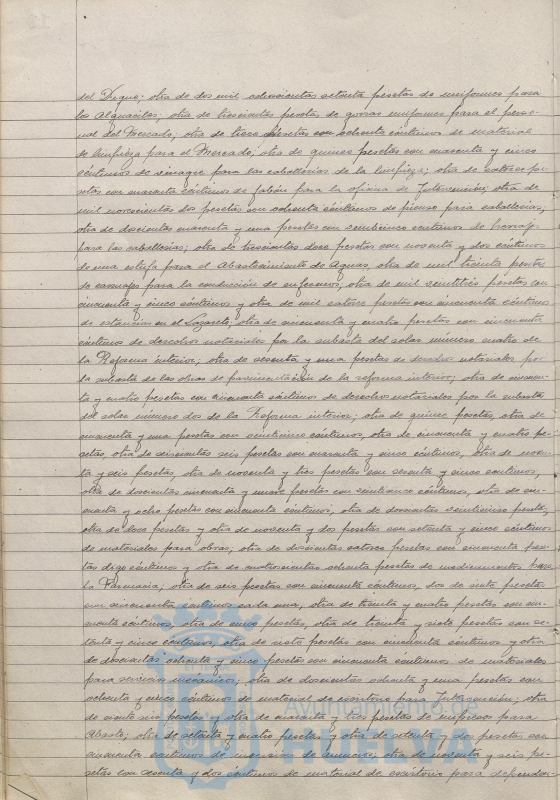 del Dique; otra de dos mil ochocientas setenta pesetas de uniformes para
los Alguaciles; otra de trescientas pesetas de gorras uniformes para el perso-
nal del Mercado; otra de trece pesetas con ochenta céntimos de material
de limpieza para el Mercado; otra de quince pesetas con cuarenta y cinco
céntimos de vinagre para las caballerías de la limpieza; otra de catorce pe-
setas con cuarenta céntimos de jabón para la oficina de Intervención; otra de
mil novecientas dos pesetas con ochenta céntimos de pienso para caballerías,
otra de doscientas cuarenta y una pesetas con veinticinco céntimos de
para las caballerías; otra de trescientas doce pesetas con noventa y dos céntimos
de una estufa para el Abastecimiento de Aguas, otra de mil treinta pesetas
de carruajes para la conducción de enfermos, otra de mil veintitrés pesetas con
cincuenta y cinco céntimos y otra de mil catorce pesetas con cincuenta céntimos
de estancias en el Lazareto; otra de cincuenta y cuatro pesetas con cincuenta
céntimos de derechos notariales por la subasta del solar número cuatro de
la Reforma interior; otra de sesenta y una pesetas de derechos notariales por
la subasta de las obras de pavimentación de la reforma interior; otra de cincuen-
ta y cuatro pesetas con cincuenta céntimos de derechos notariales por la subasta
del solar número dos de la Reforma interior; otra de quince pesetas, otra de
cuarenta y una pesetas con veinticinco céntimos, otra de cincuenta y cuatro pe-
setas, otra de seiscientas seis pesetas con cuarenta y cinco céntimos, otra de noven-
ta y seis pesetas, otra de noventa y tres pesetas con sesenta y cinco céntimos,
otra de doscientas cincuenta y nueve pesetas con veinticinco céntimos, otra de cin-
cuenta y ocho pesetas con cincuenta céntimos, otra de doscientas veinticinco pesetas,
otra de doce pesetas y otra de noventa y dos pesetas con setenta y cinco céntimos
de materiales para obras, otra de doscientas catorce pesetas con cincuenta pese-
tas digo céntimos y otra de cuatrocientas ochenta pesetas de medicamentos para
la Farmacia; otra de seis pesetas con cincuenta céntimos, dos de siete pesetas
con cincuenta céntimos cada una, otra de treinta y cuatro pesetas con cin-
cuenta céntimos, otra de cinco pesetas, otra de treinta y siete pesetas con se-
tenta y cinco céntimos, otra de siete pesetas con cincuenta céntimos y otra
de doscientas ochenta y cinco pesetas con cincuenta céntimos de materiales
para servicios mecánicos; otra de doscientas ochenta y una pesetas con
ochenta y cinco céntimos de material de escritorio para Intervención; otra
de veinte seis pesetas y otra de cuarenta y tres pesetas de impresos para
Abasto; otra de setenta y cuatro pesetas y otra de setenta y dos pesetas con
cincuenta céntimos de inserción de anuncios; otra de noventa y seis pe-
setas con sesenta y dos céntimos de material de escritorio para dependen-
Ayuntamiento de
HUELVA